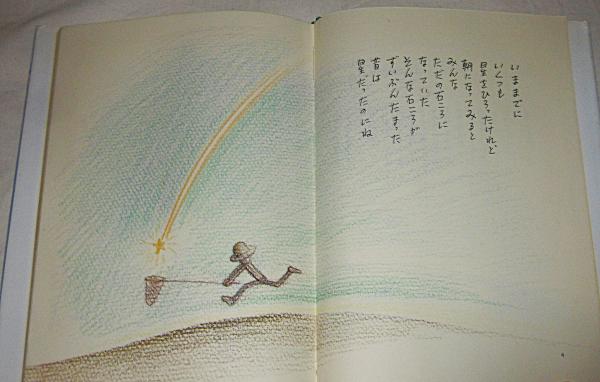 いままでに
いくつも
星をひろったけれど
朝になってみると
みんな
ただの石ころに
なっていた
そんな石ころが
ずいぶんたまった
昔は
星だったのにね